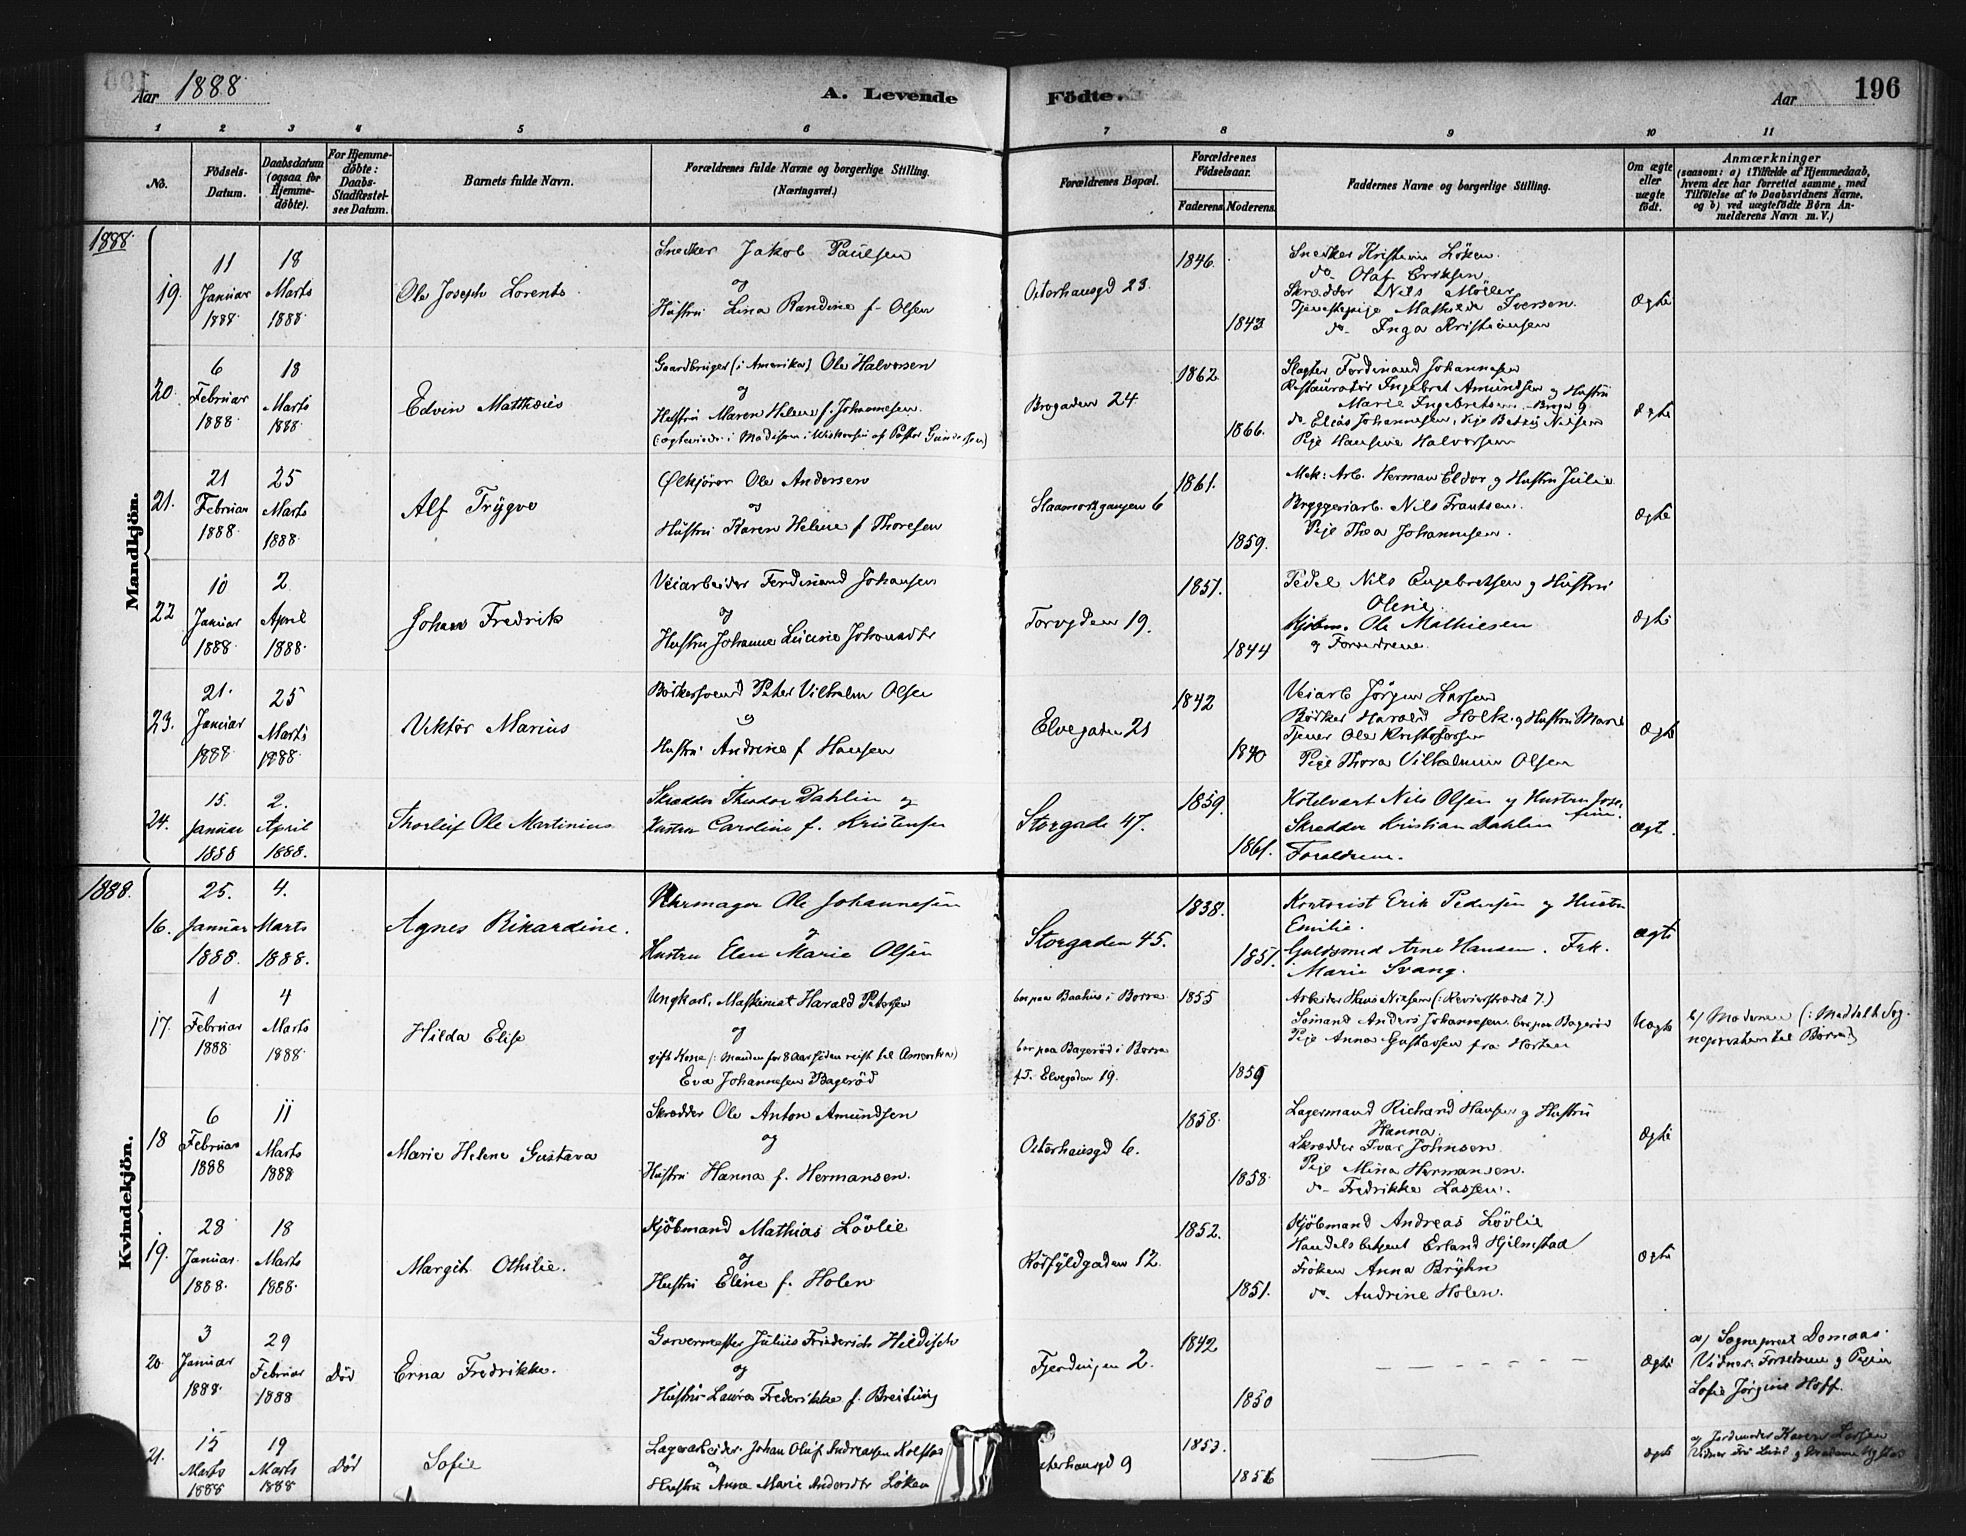 Aar 1888
A. Levende Födte.
Aar 196
1 2 3 4 5 6 7 8 9 10 11
No.
Födsels-Datum.
Daabsdatum (ogsaa for Hjemme-döbte).
For Hjemme-döbte: Daabs-Stadfæstel-ses Datum.
Barnets fulde Navn.
Forældrenes fulde Navne og borgerlige Stilling. (Næringsvei.)
Forældrenes Bopæl.
Forældrenes Födselsaar.
Faderens Moderens
Faddernes Navne og borgerlige Stilling.
Om ægte eller uægte födt.
Anmærkninger
(saasom: a) i Tilfælde af Hjemmedaab,
hvem der har forrettet samme, med
Tilföielse af to Daabsvidners Navne,
og b) ved uægtefödte Börn An-
melderens Navn m. V.)
Mandkjön.
1888
19. 11 Januar 1888 18 Marts 1888
Ole Joseph Lorents
Snedker Jakob Paulsen
og
Hustru Lina Randine f. Olsen
Osterhausgd 23.
1846.
1843
Snedker Kristian Löken
do Olaf Eriksen
Skrædder Nils Möller
Tjenestepige Mathilde Iversen
do- Inga Kristiansen
Ægte
20. 6 Februar 1888 18 Marts 1888
Edvin Matthæus
Gaardbruger (i Amerika) Ole Halvorsen
og
Hustru Maren Helene f. Johannesen
(:ægteviede i Madison i Wiskonsin af Pastor Gundersen)
Brogaden 24.
1862.
1866.
Slagter Ferdinand Johannesen
Restauratör Ingebret Amundsen og Hustru
Marie Ingebretsen - Brogd 9
do Elias Johannesen, Pige Betzy Nilsen
Pige Hansine Halvorsen
Ægte
21. 21 Februar 1888 25 Marts 1888
Alf Trygve
Ølkjörer Ole Andersen
og
Hustru Karen Helene f. Thoresen
Slaamotgangen 6
1861.
1859.
Mek: Arb. Herman Eldor og Hustru Julie
Bryggeriarb. Nils Frantsen.
Pige Thea Johannesen.
Ægte
22 10 Januar 1888 2 April 1888
Johan Fredrik
Veiarbeider Ferdinand Johansen
og
Hustru Johanne Lucine Johansdtr
Torvgden 19.
1851.
1844
Pedel Nils Engebretsen og Hustru
Oline.
Kjöbm. Ole Mathiesen
og Forældrene.
Ægte
23. 21. Januar 1888 25 Marts 1888
Viktor Marius
Bödkersvend Peter Vilhelm Olsen
og
Hustru Andrine f. Hansen
Elvegaden 21
1842
1840
Veiarb Jörgen Larsen
Bödker Harald Holk og Hustru Marie
Tjener Ole Kristofersen
Pige Thora Vilhelmine Olsen
Ægte
24. 15. Januar 1888 2. April 1888.
Thorleif Ole Martinius
Skrædder Theodor Dahlin og
Hustru Caroline f. Kristensen
Storgade 47.
1859.
1861.
Hotelvært Nils Olsen og Hustru Jose-
fine.
Skrædder Kristian Dahlin
Forældrene.
Ægte.
Kvindekjön.
1888.
16. 25. Januar 1888. 4. Marts 1888.
Agnes Rikardine.
Uhrmager Ole Johannesen
og
Hustru Elen Marie Olsen
Storgaden 45.
1838.
1851.
Kontorist Erik Pedersen og Hustru
Emilie.
Guldsmed Arne Hansen. Frk.
Marie Svang.
Ægte
17. 1 Februar 1888 4 Marts 1888
Hilda Elise
Ungkarl, Maskinist Harald Petersen
og
gift Kone (: Manden for 8 Aar siden reist til Amerika)
Eva Johannesen Bageröd
bor paa Baahus i Borre
bor paa Bagerød i Borre
f.T. Elvegaden 19.
1855
1859
Arbeider Hans Nilsen (: Revierstrædet 7.)
Sömand Anders Johannesen. bor paa Bageröd
Pige Anna Gustavsen fra Horten
Uægte
b) Moderen (: Meddelt Sog-
nepræsten til Borre)
18 6 Februar 1888 11 Marts 1888
Marie Helene Gustava
Skrædder Ole Anton Amundsen
og
Hustru Hanna f. Hermansen.
Osterhausgd 6.
1858.
1858
Lagermand Richard Hansen og Hustru
Hanna.
Skrædder Ivar Johnsen
Pige Mina Hermansen.
do- Fredrikke Lassen.
Ægte
19. 28 Januar 1888. 18 Marts 1888.
Margit Othilie.
Kjöbmand Mathias Lövlie
og
Hustru Eline f. Holen
Rörfyldgaden 12.
1852.
1851.
Kjöbmand Andreas Lövlie
Handelsbetjent Erland Hjelmstad
Fröken Anna Bryhn
do. Andrine Holen.
Ægte
20. 3 Januar 1888. 29 Februar 1888 Död
Erna Fredrikke.
Garvermester Julius Friederich Heldisch
og
Hustru Laura Frederikke f. Breitung
Fjerdingen 2.
1842
1850
Ægte
a) Sognepræst Domaas.
Vidner: Forældrene og Pigen
Sofie Jörgine Hoff.
21. 15 Marts 1888 19 Marts 1888 Död
Sofie
Lagerarbeider Johan Oluf Andreassen Kolstad
og
Hustru Anne Marie Andersdtr Löken
Osterhausgd 9
1853.
1856
Ægte
a) Jordemoder Karen Larsen
Vidner Fru Lund og Madame Nygaas